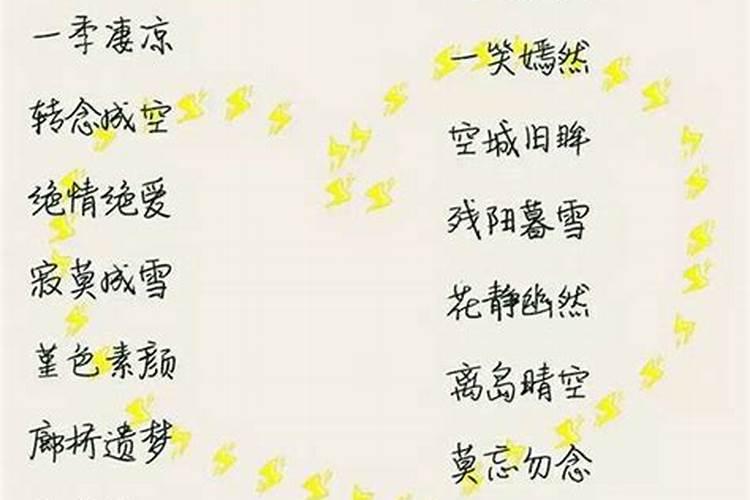 一季凄凉
转念成空
绝情绝爱
寂莫成雪
堇色素颜
廊桥遗梦
一笑嫣然
空城旧眸
残阳暮雪
花静幽然
离岛晴空
莫忘勿念